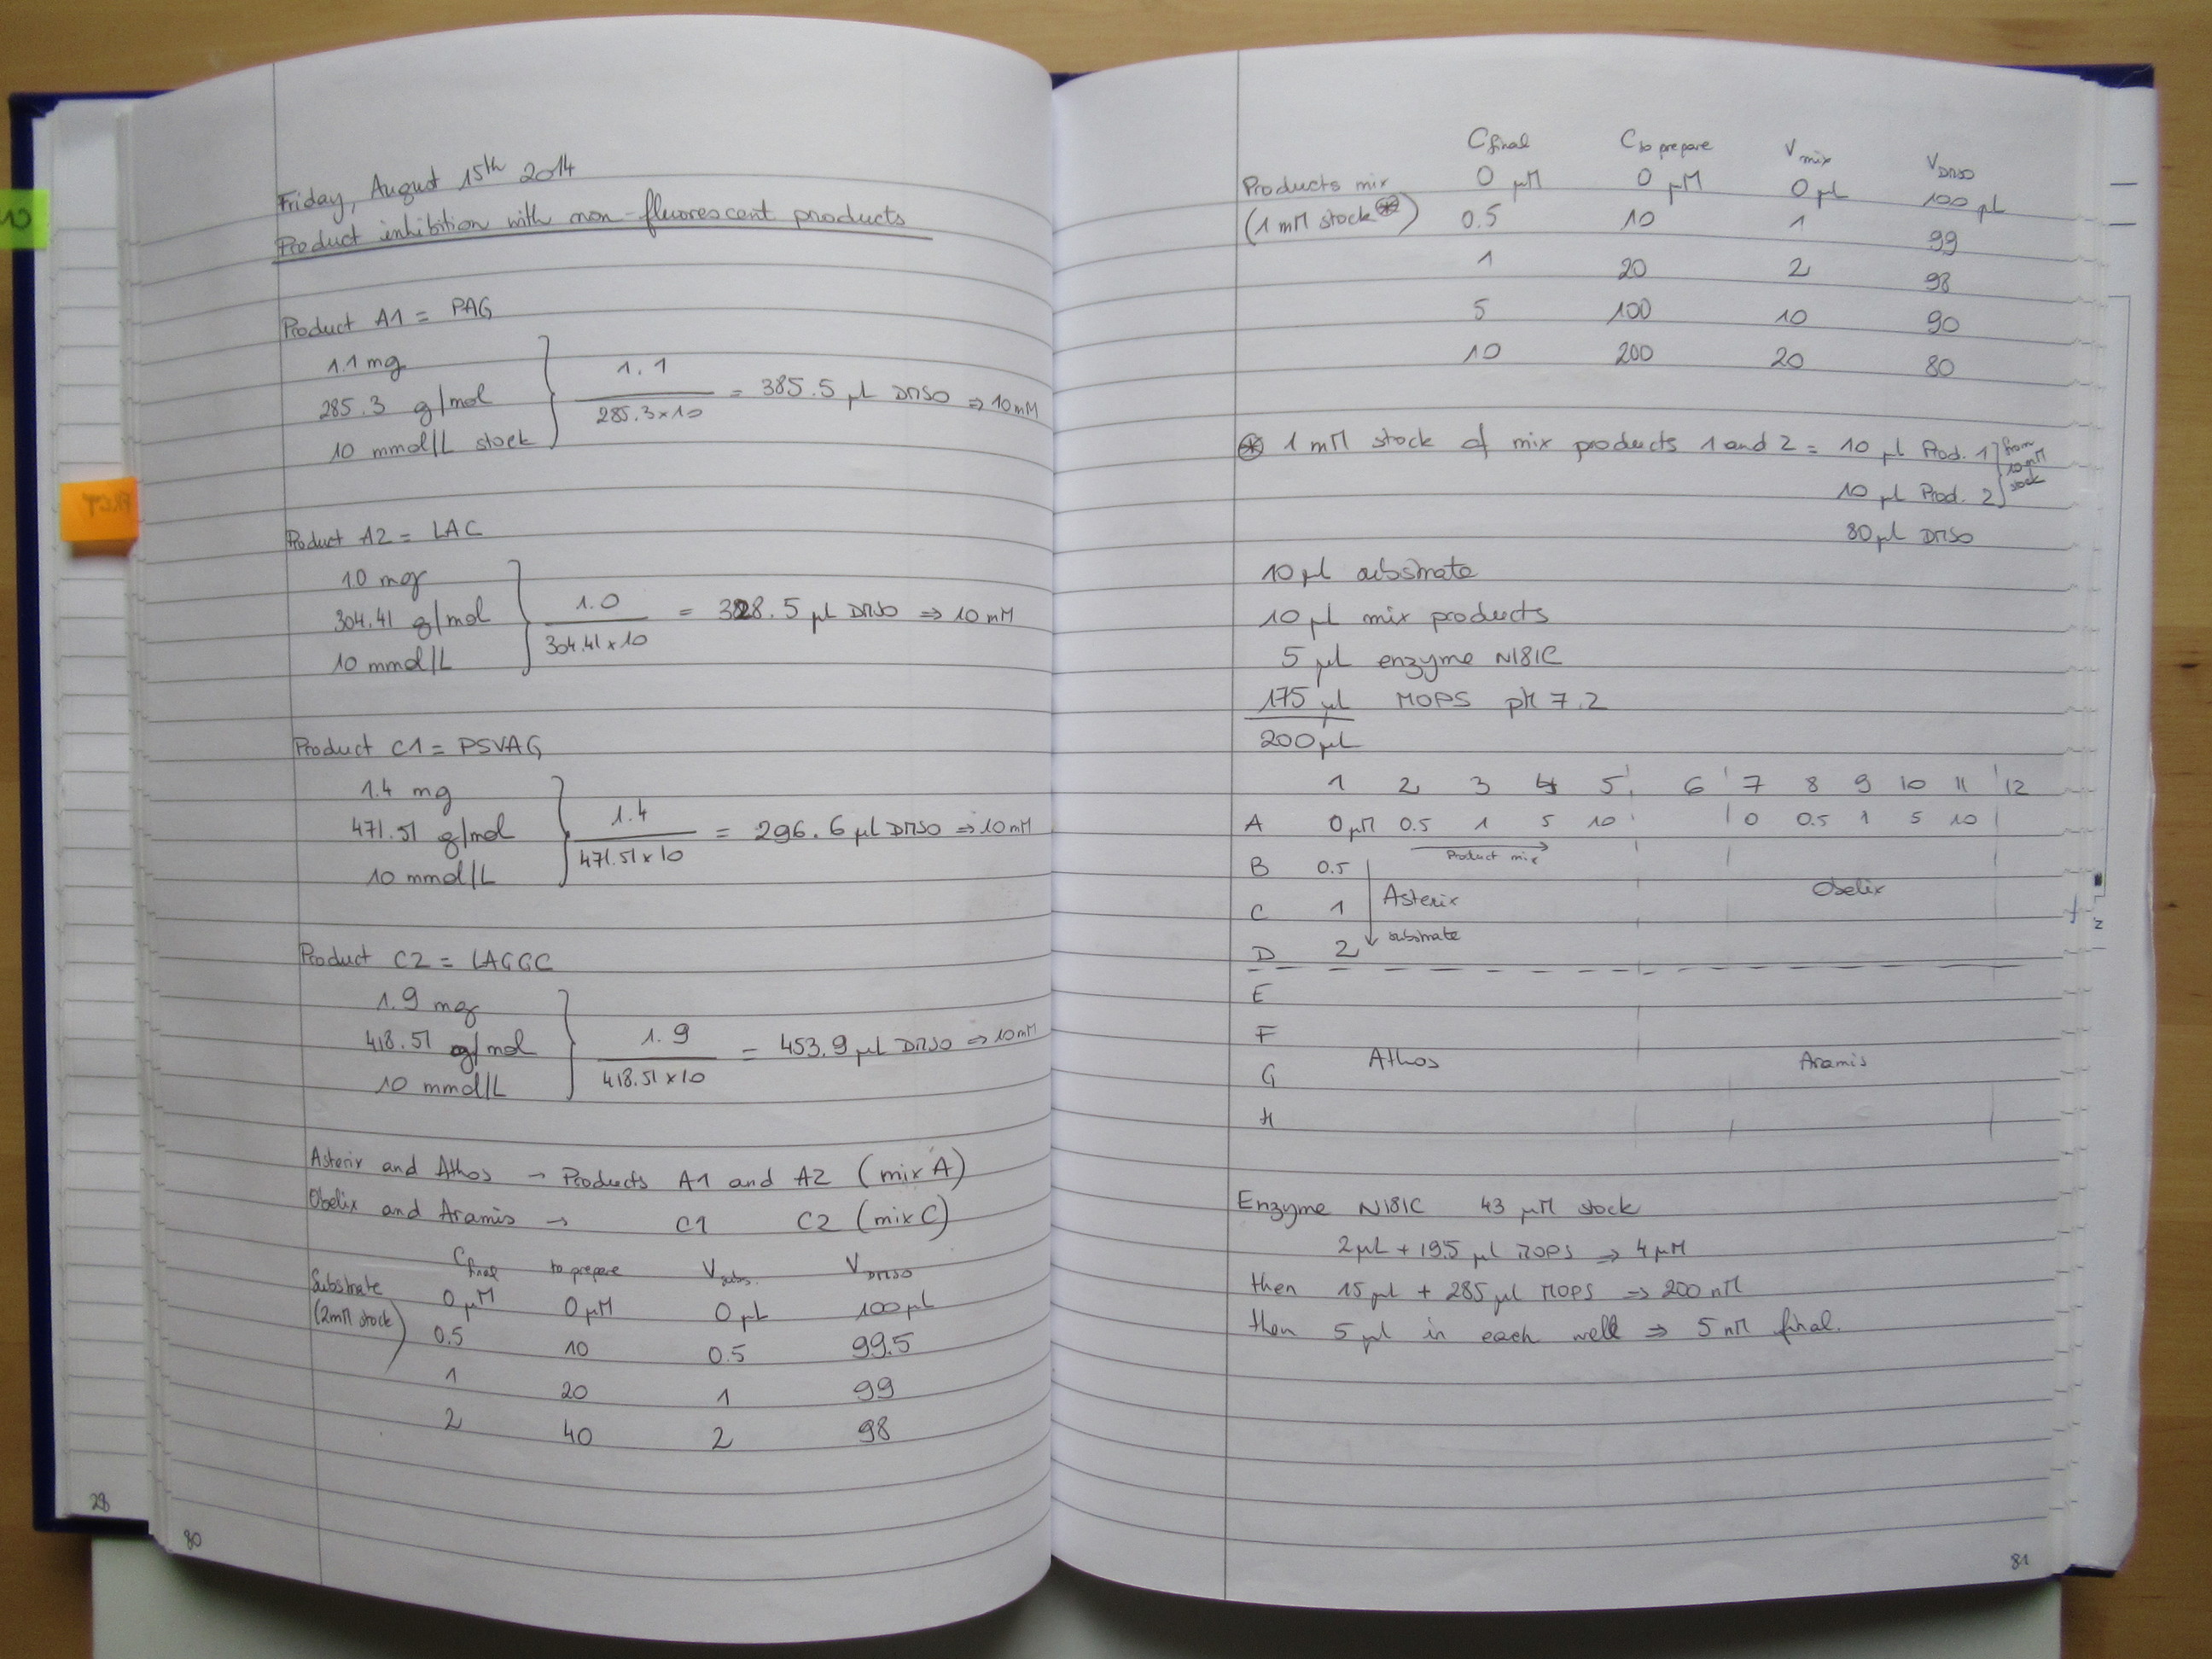 Friday, August 15th 2014
Product inhibition with non-fluorescent products
Product A1 = PAG
1.1 mg
285.3 g/mol
10 mmol/L stock
1.1
285.3 x 10
= 385.5 µL DMSO ⇒ 10 mM
Product A2 = LAC
1.0 mg
304.41 g/mol
10 mmol/L
1.0
304.41 x 10
= 328.5 µL DMSO ⇒ 10 mM
Product C1 = PSVAG
1.4 mg
471.51 g/mol
10 mmol/L
1.4
471.51 x 10
= 296.6 µL DMSO ⇒ 10 mM
Product C2 = LAGGC
1.9 mg
418.51 g/mol
10 mmol/L
1.9
418.51 x 10
= 453.9 µL DMSO ⇒ 10 mM
Asterix and Athos → Products A1 and A2 (mix A)
Obelix and Aramis → C1 C2 (mix C)
Cfinal to prepare Vsubs. VDMSO
Substrate 0 µM 0 µM 0 µL 100 µL
(2 mM stock) 0.5 10 0.5 99.5
1 20 1 99
2 40 2 98
28
80
Cfinal Cto prepare Vmix VDMSO
Products mix 0 µM 0 µM 0 µL 100 µL
(1 mM stock ⊛) 0.5 10 1 99
1 20 2 98
5 100 10 90
10 200 20 80
⊛ 1 mM stock of mix products 1 and 2 = 10 µL Prod. 1 from 10 mM stock
10 µL Prod. 2
80 µL DMSO
10 µL substrate
10 µL mix products
5 µL enzyme N181C
175 µL MOPS pH 7.2
200 µL
1 2 3 4 5 6 7 8 9 10 11 12
A 0 µM 0.5 1 5 10 0 0.5 1 5 10
Product mix
B 0.5
C 1 Asterix Obelix
D 2 substrate
E
F
G Athos Aramis
H
Enzyme N181C 43 µM stock
2 µL + 19.5 µL MOPS ⇒ 4 µM
then 15 µL + 285 µL MOPS ⇒ 200 nM
then 5 µL in each well ⇒ 5 nM final.
81